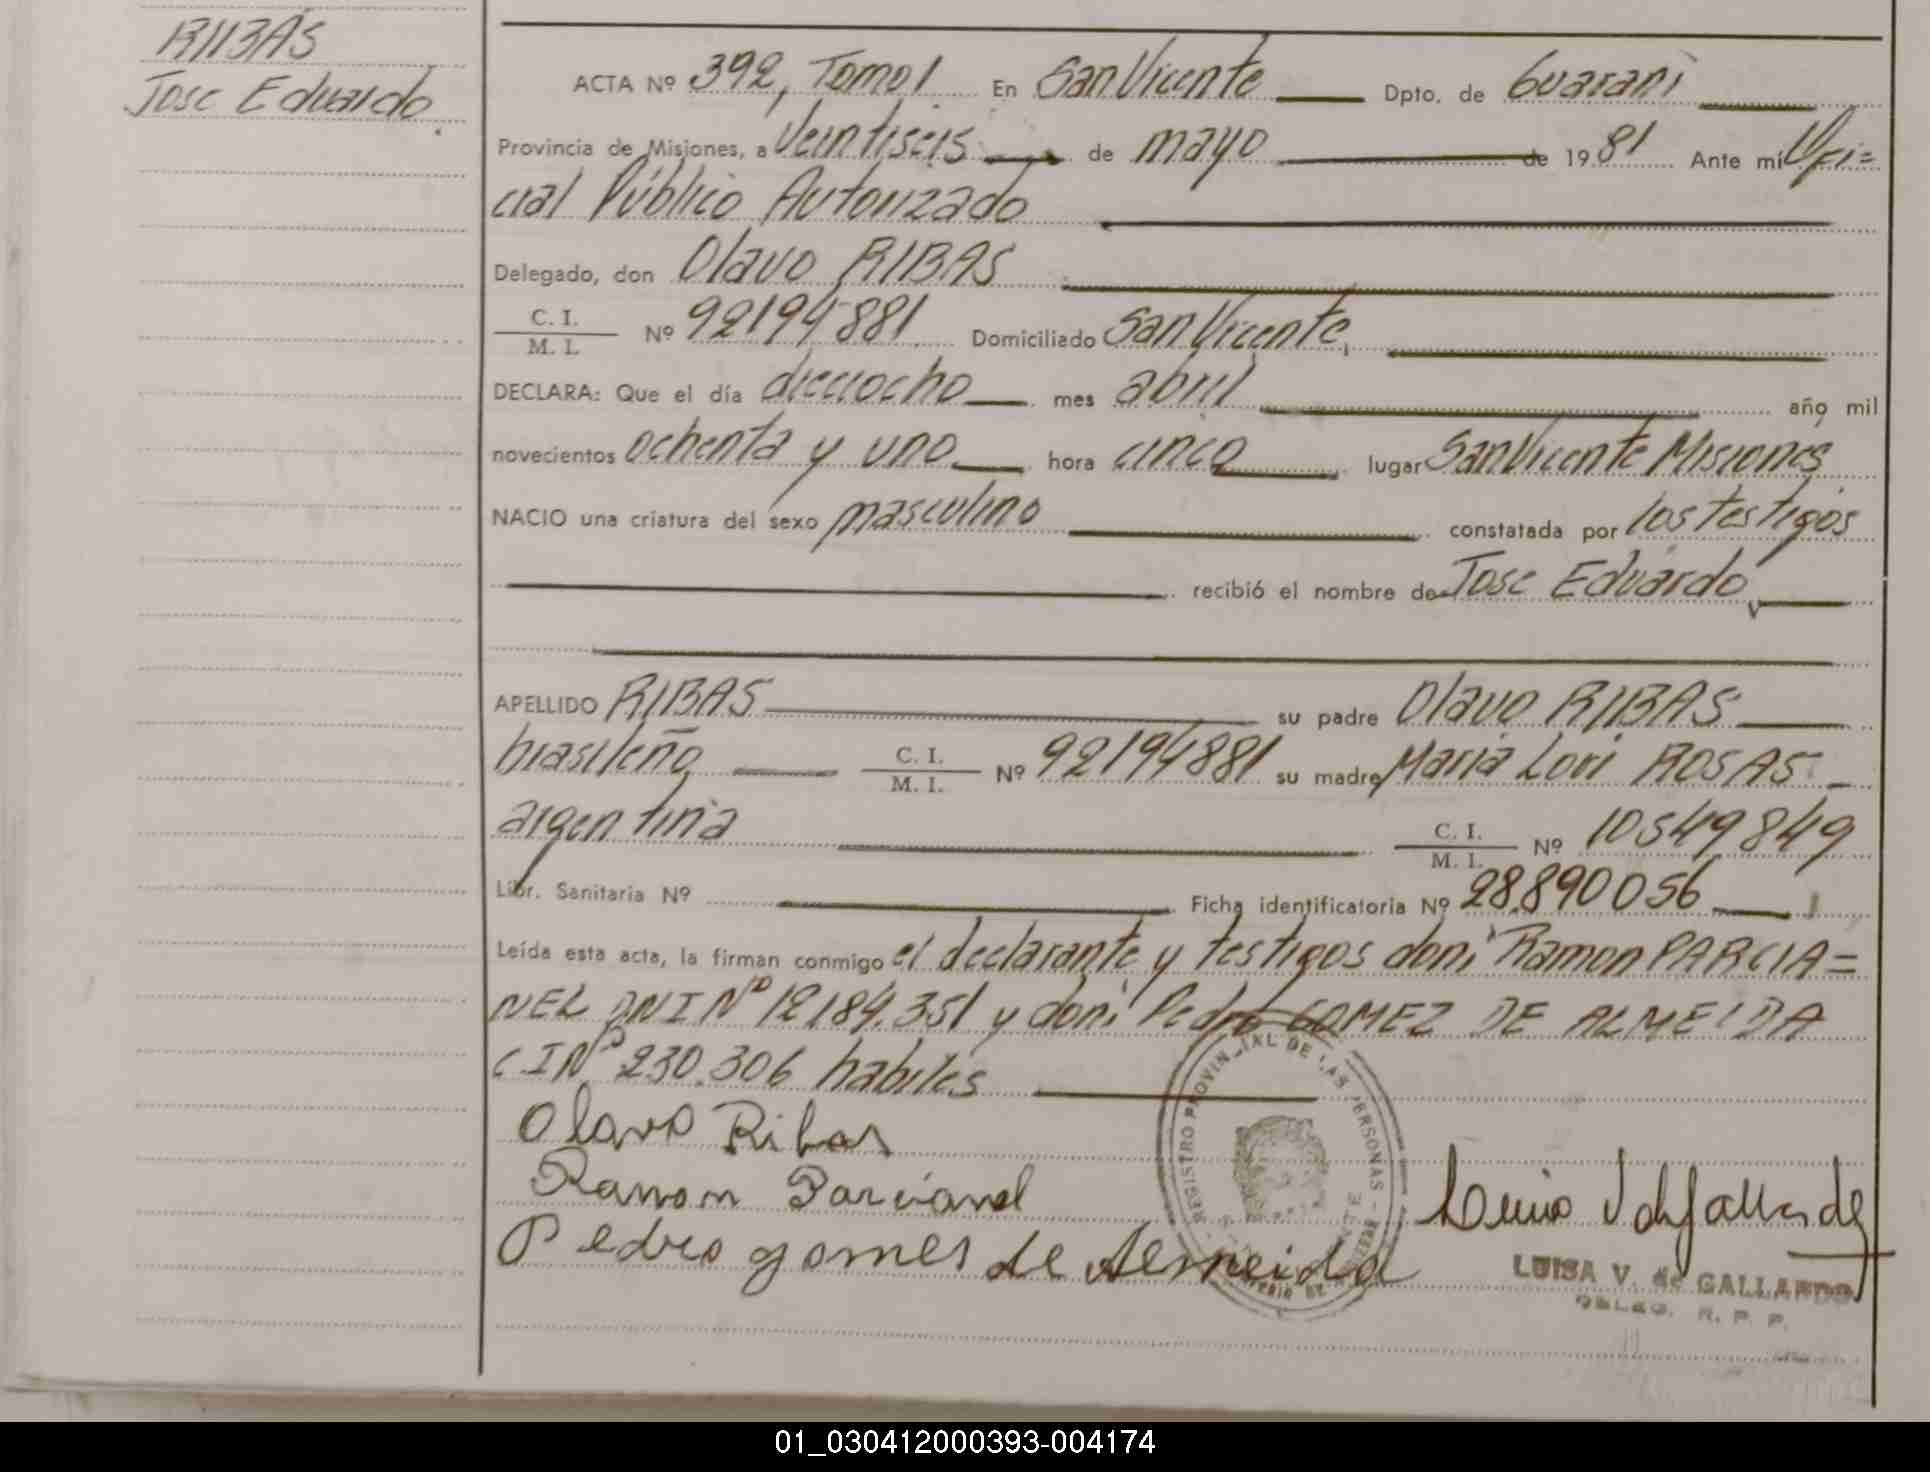 RIBAS
Jose Eduardo.
ACTA Nº 392, Tomo I En San Vicente Dpto. de Guarani
Provincia de Misiones, a Veintiseis de mayo de 1981 Ante mí Ofi=
cial Público Autorizado
Delegado, don Olavo RIBAS
C. I.
M. I. Nº 92194881 Domiciliado San Vicente,
DECLARA: Que el día dieciocho mes abril año mil
novecientos ochenta y uno hora cinco lugar San Vicente Misiones
NACIO una criatura del sexo masculino constatada por los testigos
recibió el nombre de Jose Eduardo,
APELLIDO RIBAS su padre Olavo RIBAS
brasileño, C. I. M. I. Nº 92194881 su madre Maria Lori ROSAS
argentina C. I. M. I. Nº 10549849
Libr. Sanitaria Nº Ficha identificatoria Nº 28.890056
Leída esta acta, la firman conmigo el declarante y testigos don: Ramon PARCIA=
NEL DNI Nº 12.184.351 y don: Pedro GOMEZ DE ALMEIDA
CI Nº 230.306 habiles
Olavo Ribas
Ramon Parcianel
Pedro gomes de Almeida
REGISTRO PROVINCIAL DE LAS PERSONAS
LUISA V. de GALLARDO
DELEG. R. P. P.
01_030412000393-004174